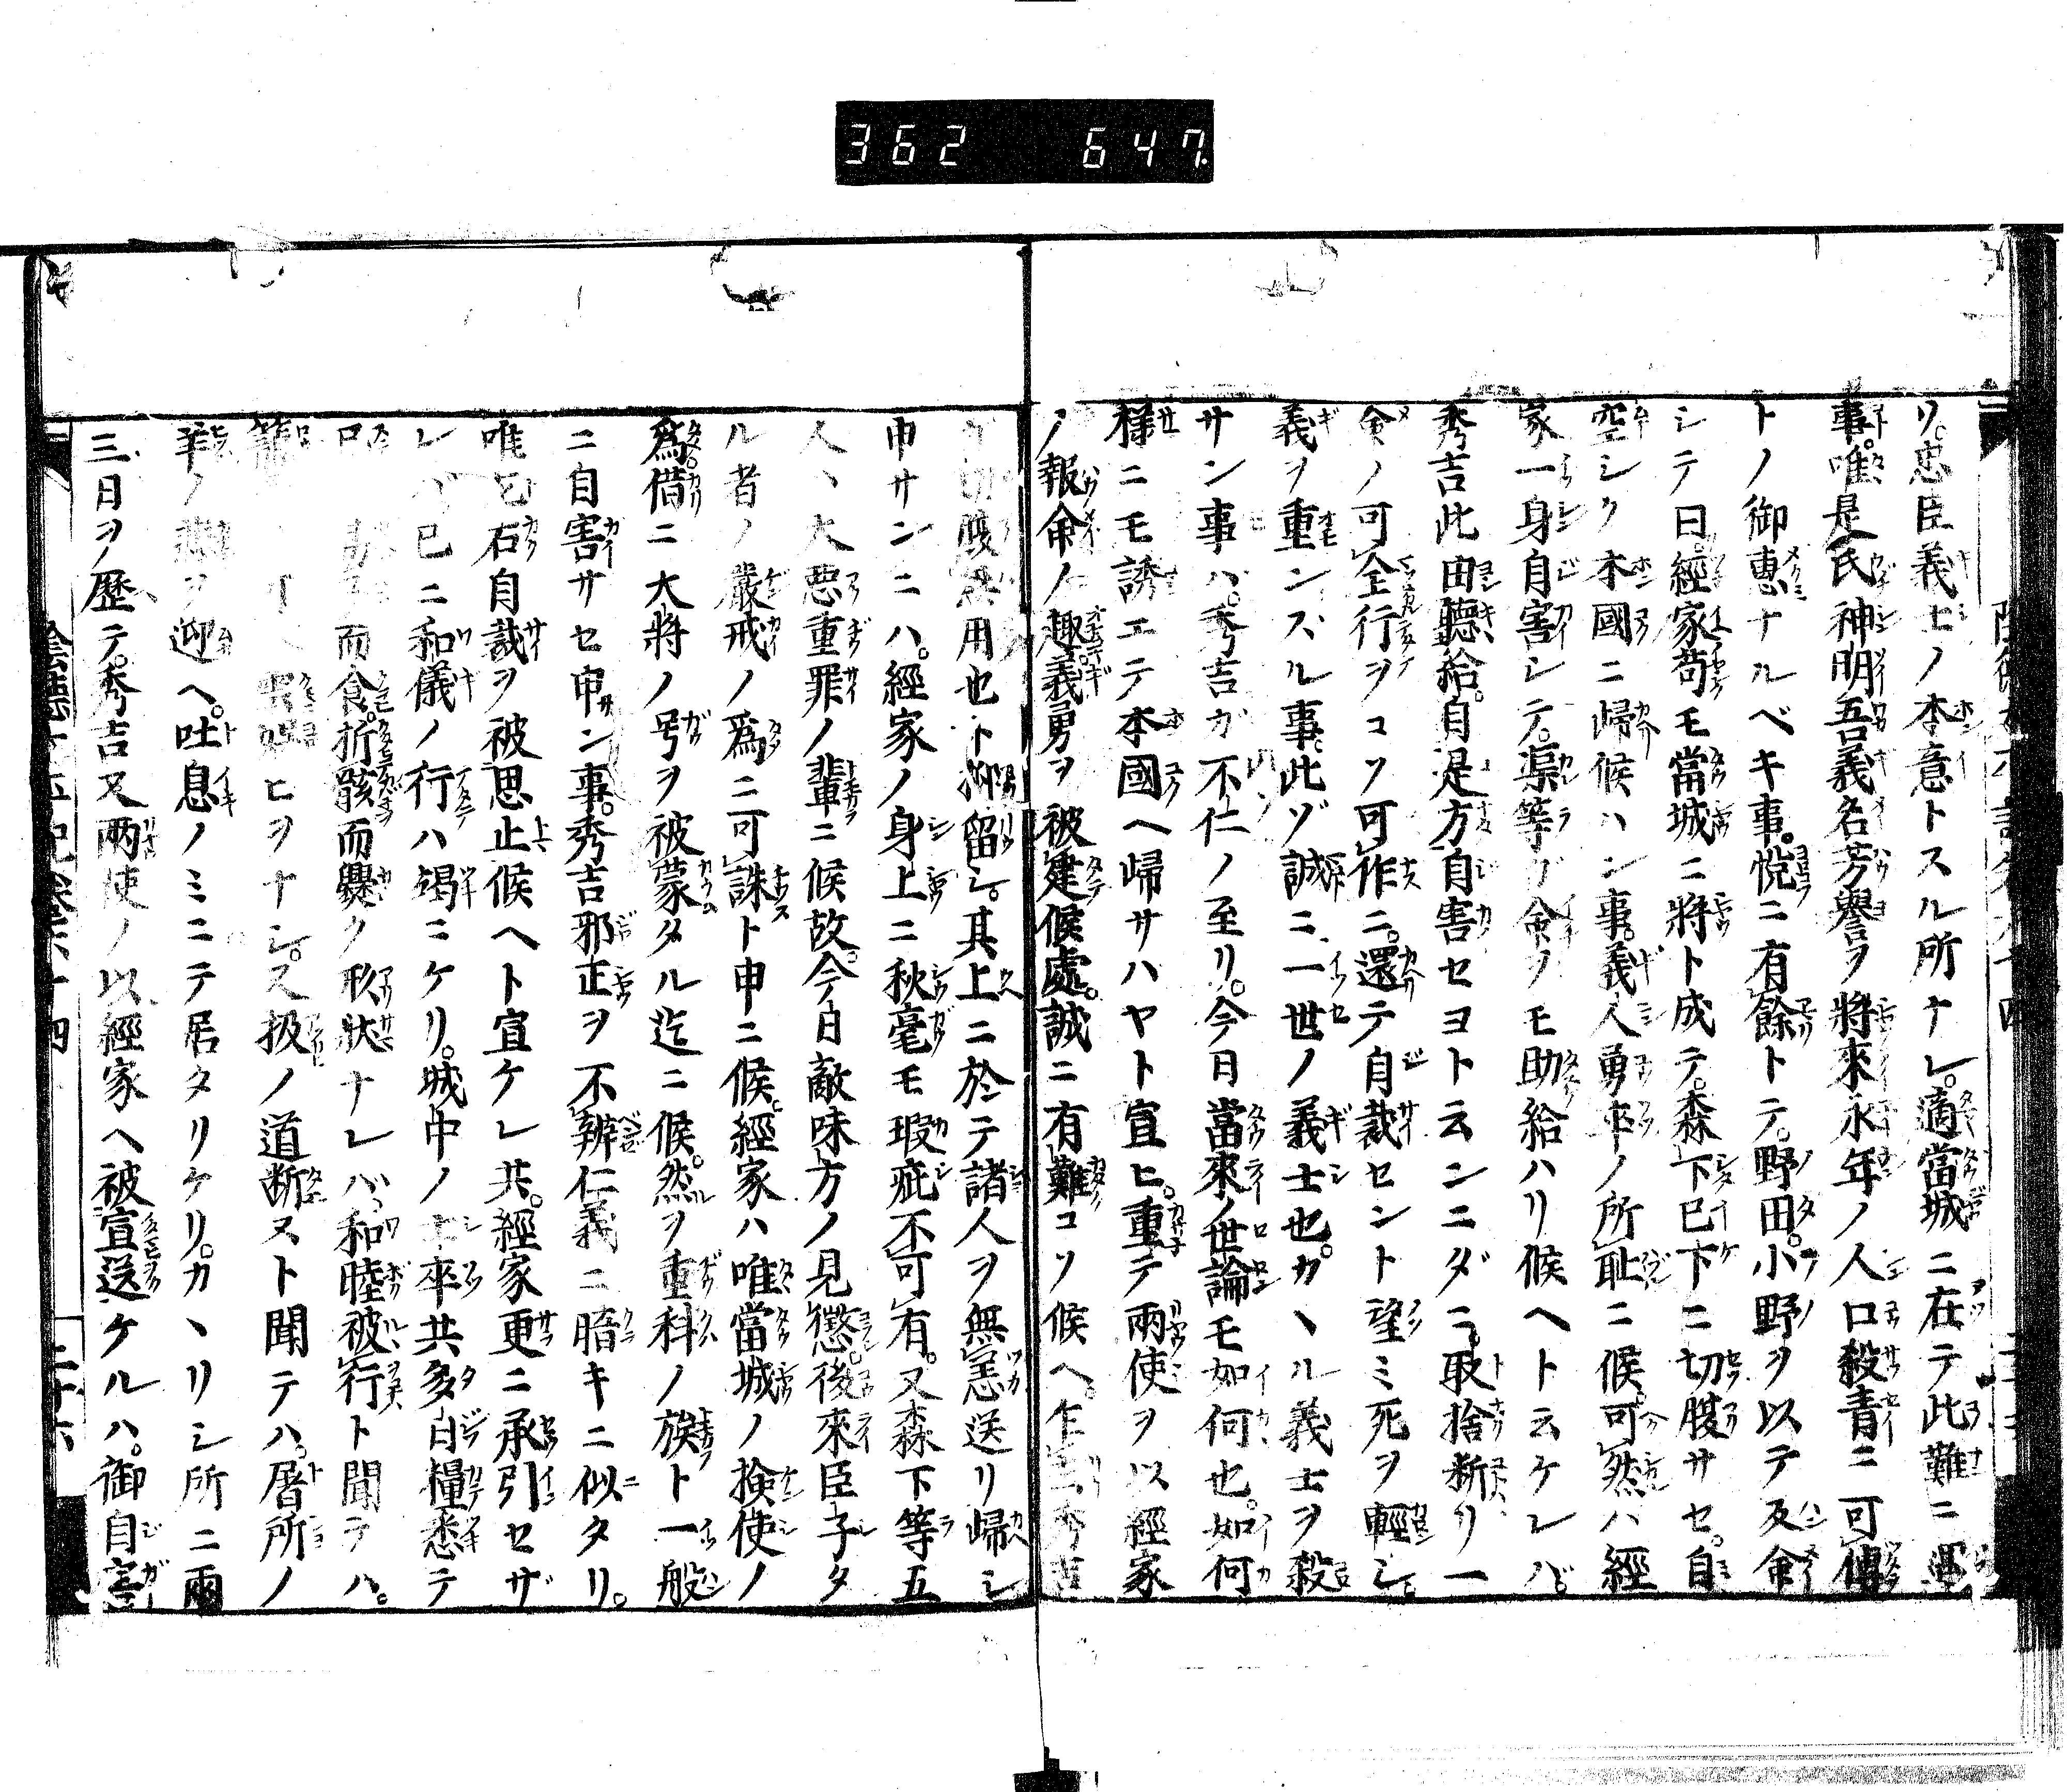 362 647.
リ。忠臣義士ノ本意トスル所ナレ。適當城ニ在テ此難ニ遇
事。唯是氏神明吾義名芳譽ヲ將來永年ノ人口殺青ニ可傳
トノ御惠ナルベキ事。悦ニ有餘トテ。野田。小野ヲ以テ反命
シテ曰。經家苟モ當城ニ將ト成テ。森下已下ニ切腹サセ。自
空シク本國ニ歸候ハン事。義人勇卒ノ所耻ニ候。可然ハ經
家一身自害シテ。渠等ガ命ヲモ助給ハリ候ヘト云ケレバ。
秀吉此由聽給。自是方自害セヨト云ンニダニ。取捨断リ一
命ノ可全行ヲコソ可作ニ。還テ自裁セント望ミ死ヲ輕シ。
義ヲ重ンズル事。此ゾ誠ニ一世ノ義士也。カヽル義士ヲ殺
サン事ハ。秀吉ガ不仁ノ至リ。今日當來ノ世論モ如何也。如何
樣ニモ誘エテ本國ヘ歸サハヤト宣ヒ。重テ兩使ヲ以經家
ノ報命ノ趣。義勇ヲ被建候處。誠ニ有難コソ候ヘ。乍去秀吉
切腹無用也ト抑留シ。其上ニ於テ諸人ヲ無恙送リ歸シ
申サンニハ。經家ノ身上ニ秋毫モ瑕疵不可有。又森下等五
人ヽ大惡重罪ノ輩ニ候故。今日敵味方ノ見懲。後來臣子タ
ル者ノ嚴戒ノ爲ニ可誅ト申ニ候。經家ハ唯當城ノ檢使ノ
爲。借ニ大將ノ号ヲ被蒙タル迄ニ候。然ヲ重科ノ族ト一般
ニ自害サセ申ン事。秀吉邪正ヲ不辨仁義ニ暗キニ似タリ。
唯乞右自裁ヲ被思止候ヘト宣ケレ共。經家更ニ承引セザ
レバ已ニ和儀ノ行ハ竭ニケリ。城中ノ士卒共多日糧悉テ
而食。折骸而爨ク形狀ナレバ。和睦被行ト聞テハ。
ヒヲナシ。又扱ノ道断ヌト聞テハ。屠所ノ
羊ノ 迎ヘ。吐息ノミニテ居タリケリ。カヽリシ所ニ兩
三日ヲ歷テ。秀吉又兩使ノ以經家ヘ被宣送ケルハ。御自害
陰德太平記卷六十四
二十六